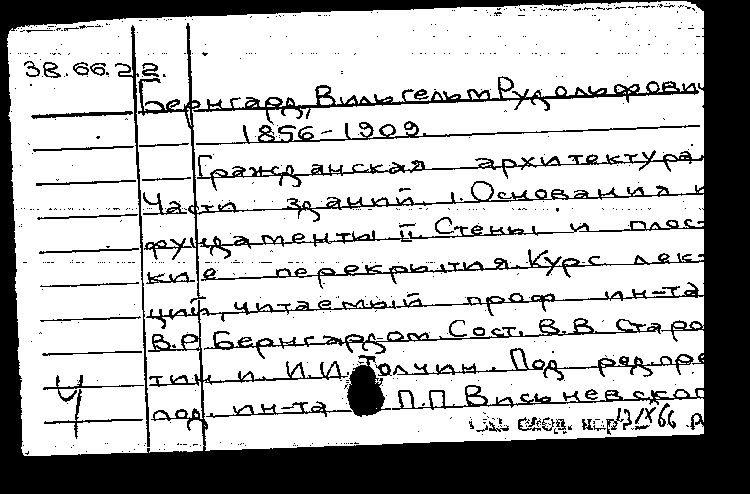 38.66.2.2.
Бернгард, Вильгельм Рудольфович
1856-1909.
Гражданская архитектура.
Части зданий. I. Основания и
фундаменты II. Стены и плос-
кие перекрытия. Курс лек-
ций, читаемый проф ин-та
В.Р. Бернгардом. Сост. В.В. Старо
тин и И.И. Толчин. Под ред. пре
под. ин-та П.П. Висьневског
Ч
см. след. кар 13/IX 66